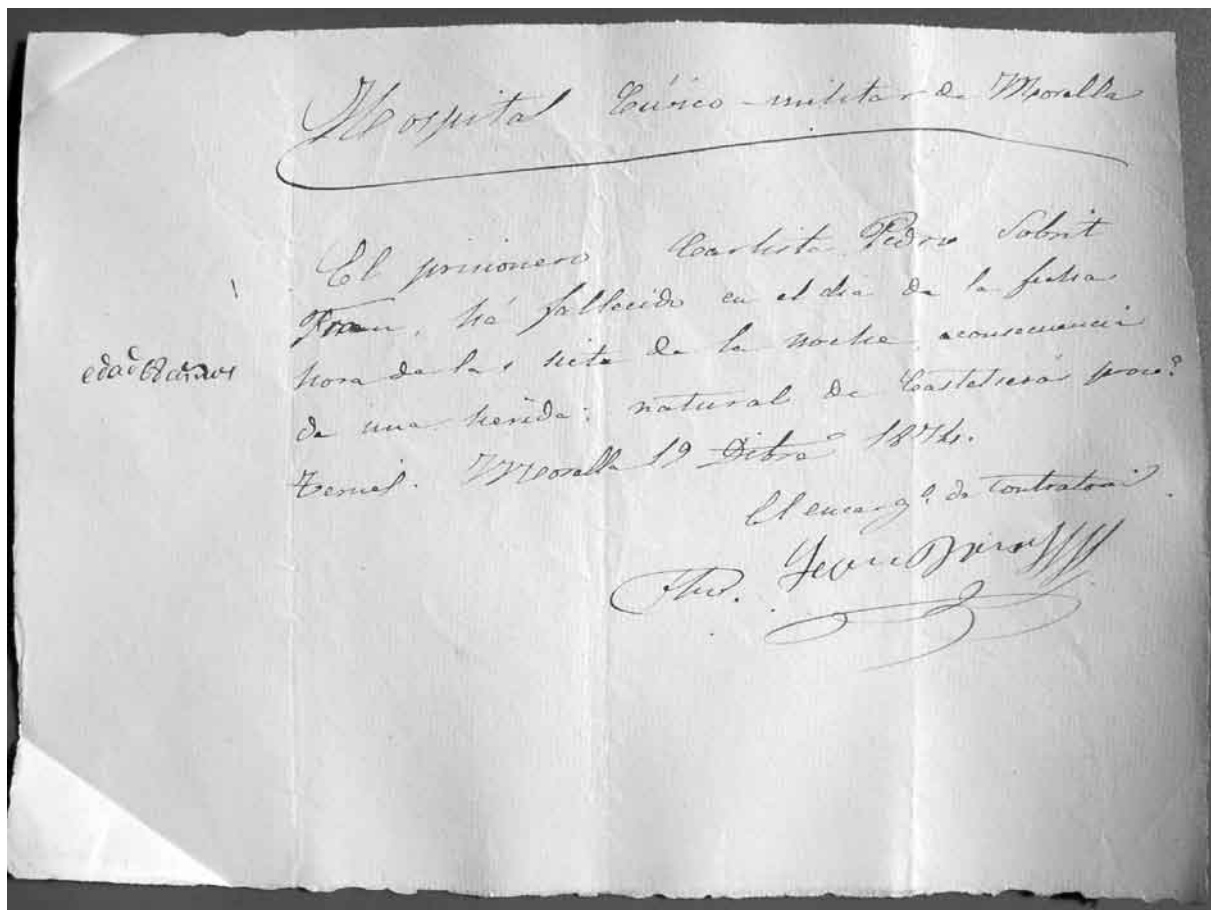 Hospital Cívico-militar de Morella
El prisionero Carlista Pedro Sobrit
ha fallecido en el dia de la fecha
edad 18 años
hora de las siete de la noche aconsecuencia
de una herida: natural de Castelserás prov.ª
Teruel. Morella 19 Dibre 1874.
El encarg.º de Contraloria